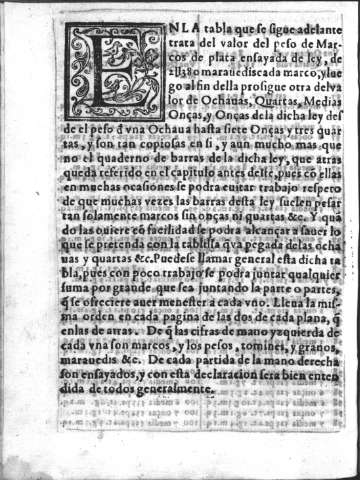 ENLA tabla que se sigue adelante
trata del valor del peso de Mar-
cos de plata ensayada de ley, de
2U380 marauediscada marco, y lue
go al fin della prosigue otra delva
lor de Ochauas, Quartas, Medias
Onças, y Onças de la dicha ley des
de el peso d vna Ochaua hasta siete Onças y tres quar
tas, y son tan copiosas en si, y aun mucho mas que
no el quaderno de barras de la dicha ley, que atras
queda referido en el capitulo antes deste, pues cō ellas
en muchas ocasiones se podra euitar trabajo respeto
de que muchas vezes las barras desta ley suelen pesar
tan solamente marcos sin onças ni quartas &c. Y quā
do las quiere cō facilidad se podra alcançar a sauer lo
que se pretenda con la tablilla q̃ va pegada de las ocha
uas y quartas &c. Puedese llamar general esta dicha ta
bla, pues con poco trabajo se podra juntar qualquier
suma por grande que sea juntando la parte o partes,
q̃ se ofreciere auer menester a cada vno. Lleua la mis-
ma orden en cada pagina de las dos de cada plana, q̃
enlas de atras. De q̃ las cifras de mano yzquierda de
cada vna son marcos, y los pesos, tomines, y granos,
marauedis &c. De cada partida de la mano derecha
son ensayados, y con esta declaracion sera bien enten
dida de todos generalmente.